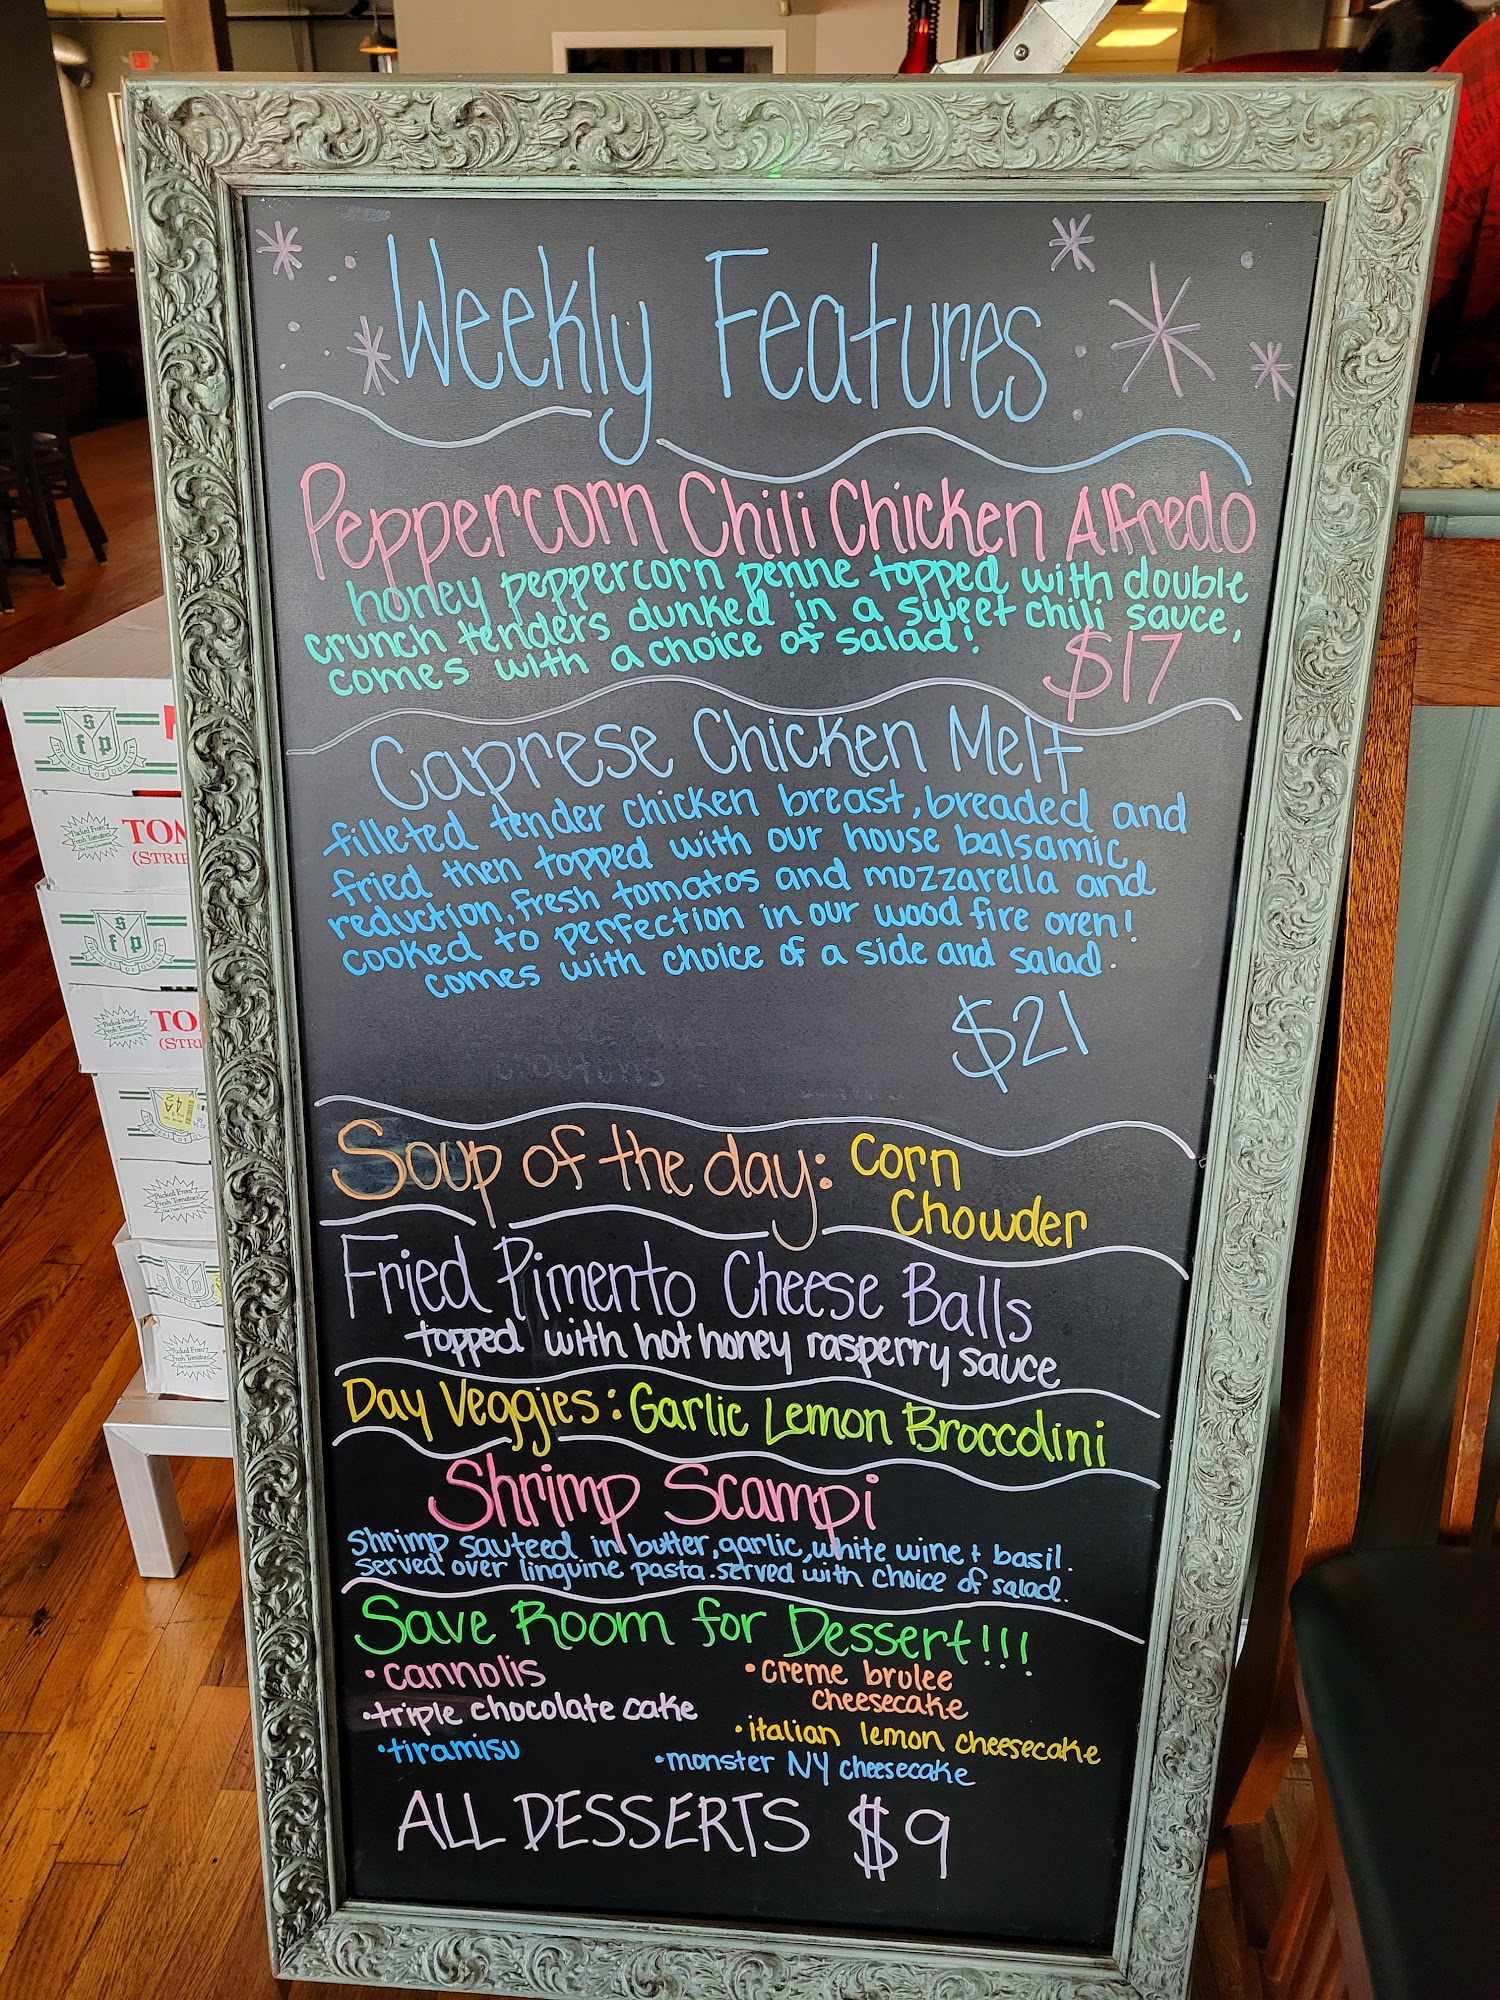 Weekly Features
Peppercorn Chili Chicken Alfredo
honey peppercorn penne topped with double
crunch tenders dunked in a sweet chili sauce,
comes with a choice of salad!
$17
Caprese Chicken Melt
filleted tender chicken breast, breaded and
fried then topped with our house balsamic
reduction, fresh tomatos and mozzarella and
cooked to perfection in our wood fire oven!
comes with choice of a side and salad.
$21
croutons
Soup of the day: Corn
Chowder
Fried Pimento Cheese Balls
topped with hot honey rasperry sauce
Day Veggies: Garlic Lemon Broccolini
Shrimp Scampi
shrimp sauteed in butter, garlic, white wine + basil.
served over linguine pasta. served with choice of salad.
Save Room for Dessert!!!
• cannolis
• triple chocolate cake
• tiramisu
• creme brulee
cheesecake
• italian lemon cheesecake
• monster NY cheesecake
ALL DESSERTS $9
sfp
SEAL OF QUALITY
Packed From
Fresh Tomatoes
TOM
(STRIP
sfp
Packed From
Fresh Tomatoes
TO
(STRI
42
Packed From
Fresh Tomatoes
Packed From
Fresh Tomatoes